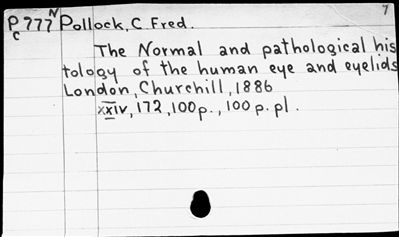 7
P 777 N Pollock, C. Fred.
c
The Normal and pathological his
tology of the human eye and eyelids.
London, Churchill, 1886
xxiv, 172, 100p., 100 p. pl.